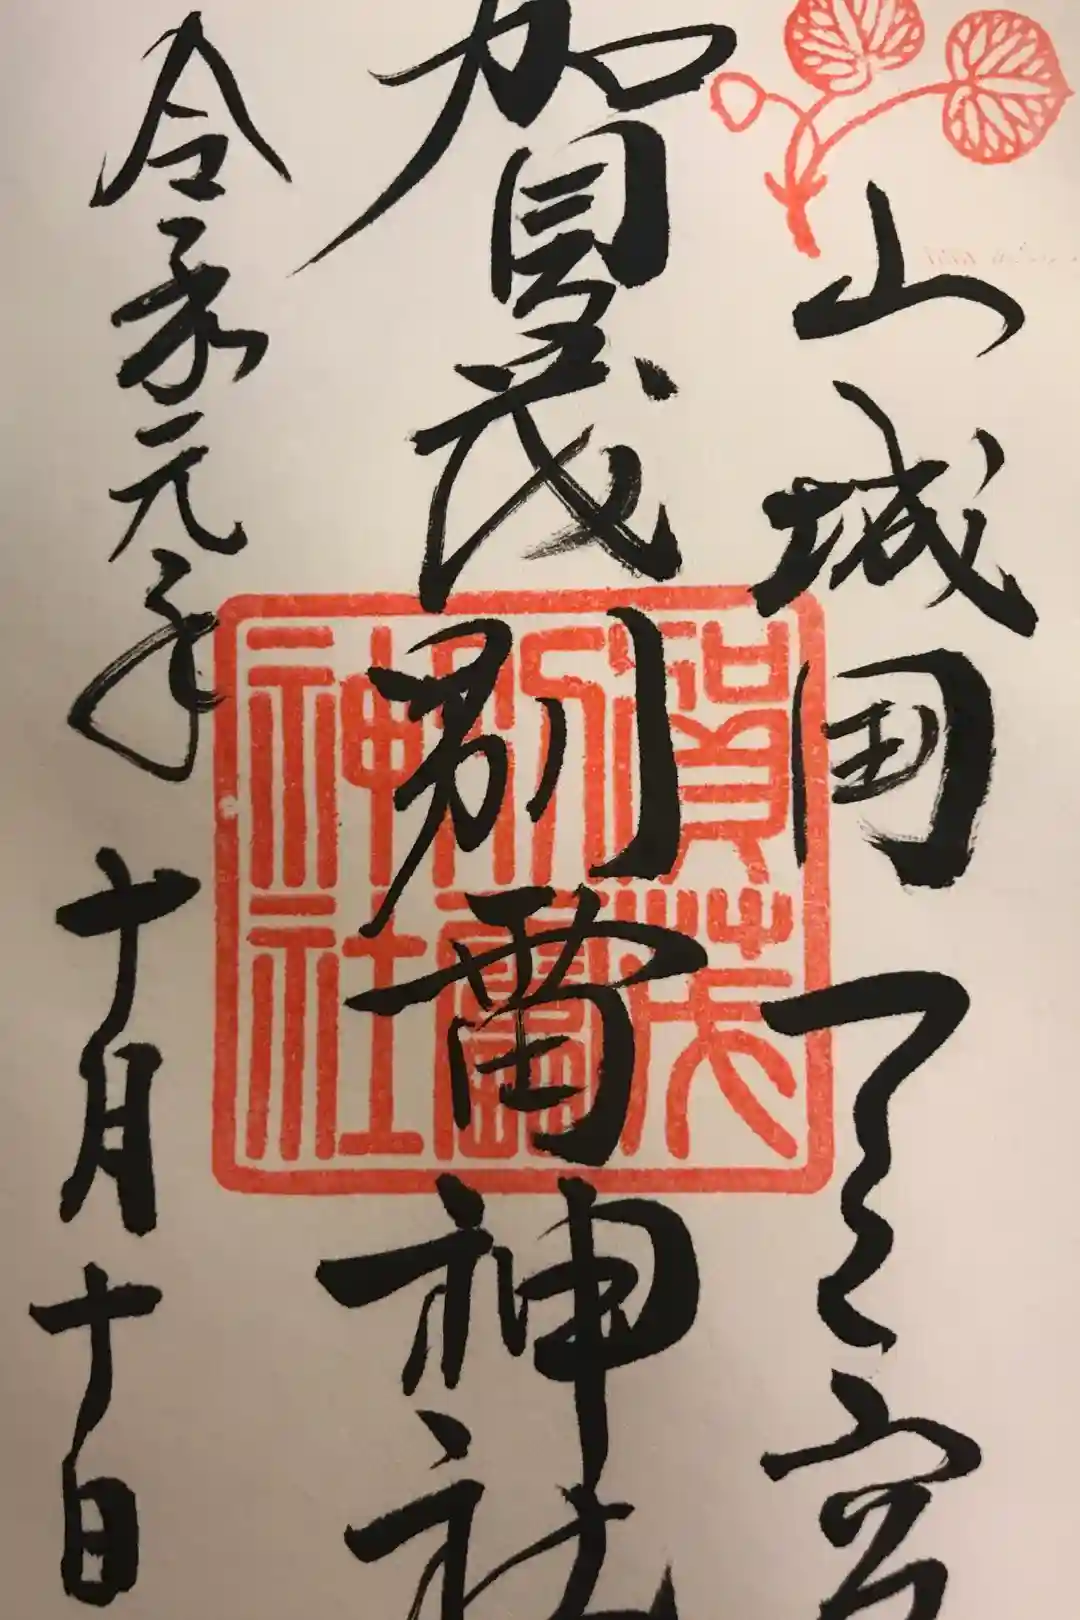 山城国一之宮
賀茂別雷神社
令和元年 十月十日
賀茂
別雷
神社